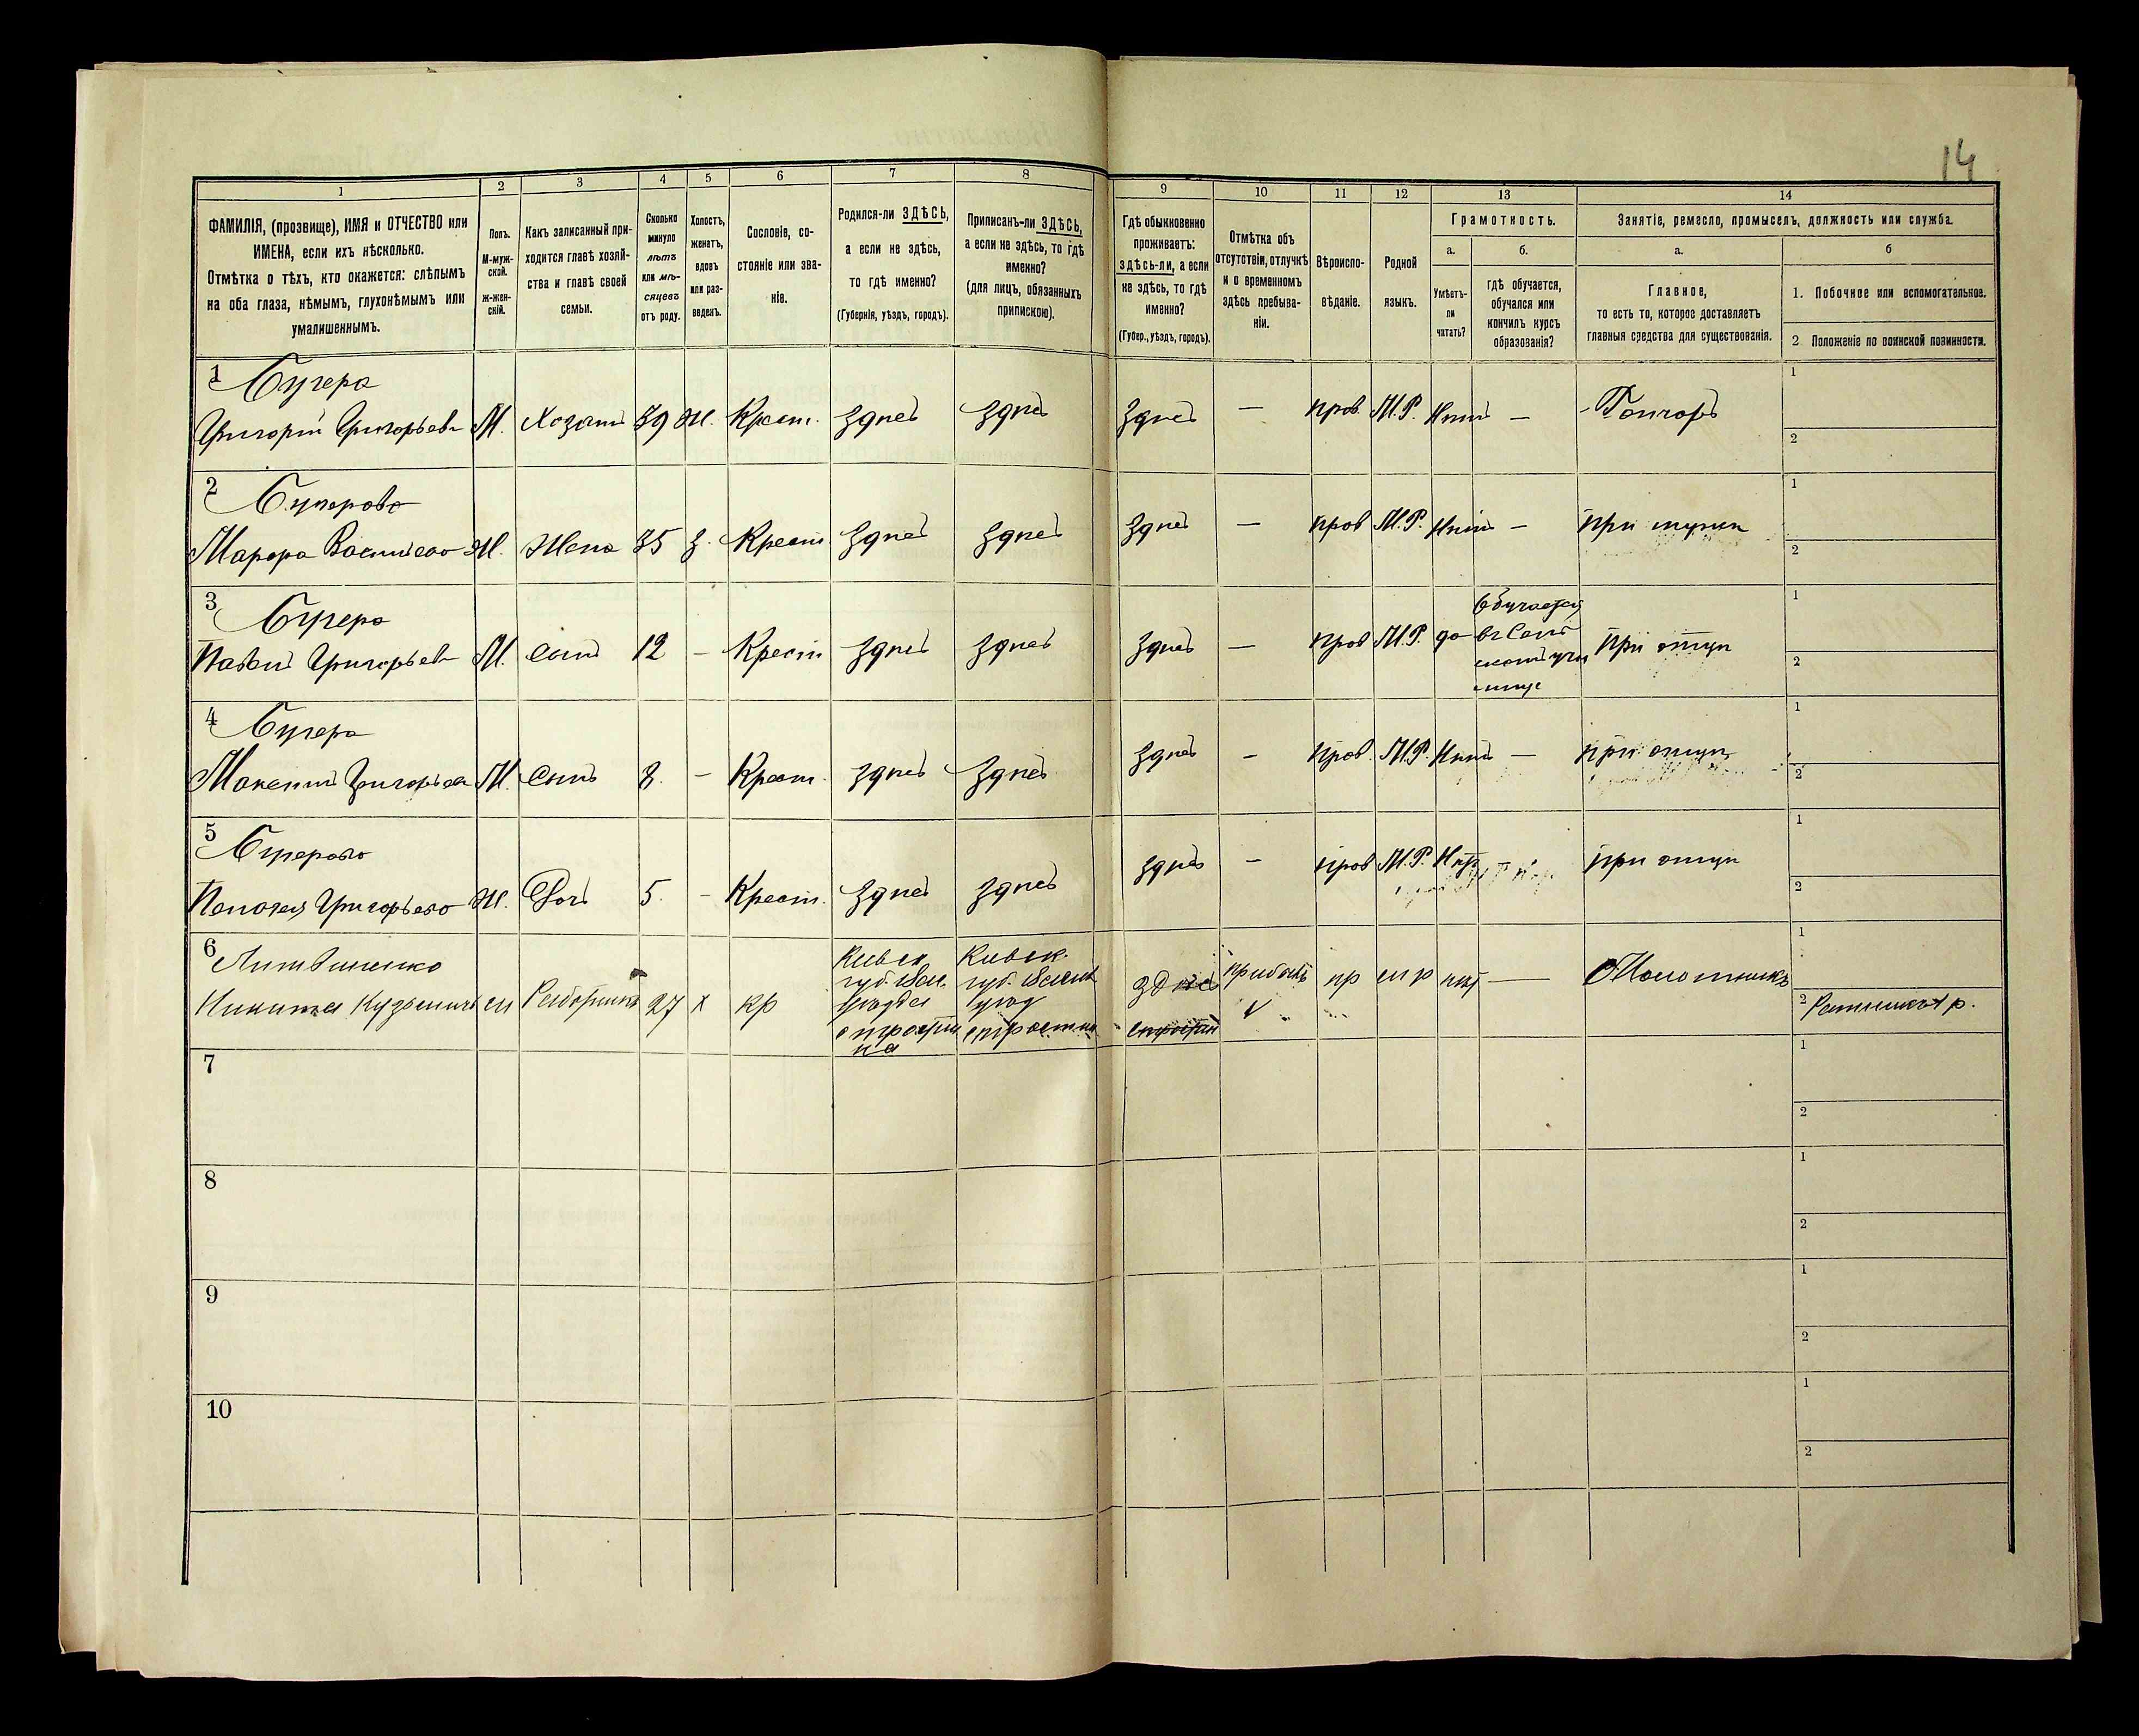 14
1 2 3 4 5 6 7 8 9 10 11 12 13 14
ФАМИЛІЯ, (прозвище), ИМЯ и ОТЧЕСТВО или
ИМЕНА, если ихъ нѣсколько.
Отмѣтка о тѣхъ, кто окажется: слѣпымъ
на оба глаза, нѣмымъ, глухонѣмымъ или
умалишеннымъ.
Полъ.
М-муж-
ской.
ж-жен-
скій.
Какъ записанный при-
ходится главѣ хозяй-
ства и главѣ своей
семьи.
Сколько
минуло
лѣтъ
или мѣ-
сяцевъ
отъ роду.
Холостъ,
женатъ,
вдовъ
или раз-
веденъ.
Сословіе, со-
стояніе или зва-
ніе.
Родился-ли ЗДѢСЬ,
а если не здѣсь,
то гдѣ именно?
(Губернія, уѣздъ, городъ).
Приписанъ-ли ЗДѢСЬ,
а если не здѣсь, то гдѣ
именно?
(для лицъ, обязанныхъ
припискою).
Гдѣ обыкновенно
проживаетъ:
здѣсь-ли, а если
не здѣсь, то гдѣ
именно?
(Губер., уѣздъ, городъ).
Отмѣтка объ
отсутствіи, отлучкѣ
и о временномъ
здѣсь пребыва-
ніи.
Вѣроиспо-
вѣданіе.
Родной
языкъ.
Грамотность.
а.
Умѣетъ-
ли
читать?
б.
гдѣ обучается,
обучался или
кончилъ курсъ
образованія?
Занятіе, ремесло, промыселъ, должность или служба.
а.
Главное,
то есть то, которое доставляетъ
главныя средства для существованія.
б
1. Побочное или вспомогательное.
2 Положеніе по воинской повинности.
1
Григорій Григорьевъ М. Хозяинъ 39 Ж. Крест. Здесь Здесь Здесь — Прав. М.Р. Нетъ — Гончаръ
1
2
2
Ж. Жена 35 З. Крест Здесь Здесь Здесь — Прав М.Р. Нетъ — При мужи
1
2
3
Григорьевъ М. Сынъ 12 — Крест Здесь Здесь Здесь — Прав М.Р. да Обучается въ При отцу
1
2
4
Максимъ Григорьев М. Сынъ 8. — Крест. Здесь Здесь Здесь — Прав. М.Р. Нетъ — При отцу
1
2
5
Пелагея Григорьева Ж. Дочь 5. — Крест. Здесь Здесь Здесь — Прав М.Р. Нетъ — При отцу
1
2
6
Литвиненко
Никита Кузьмичъ м Работникъ 27 х кр Киевск. губ. Киевск. губ. пр м р нет —
1
2
7
1
2
8
1
2
9
1
2
10
1
2